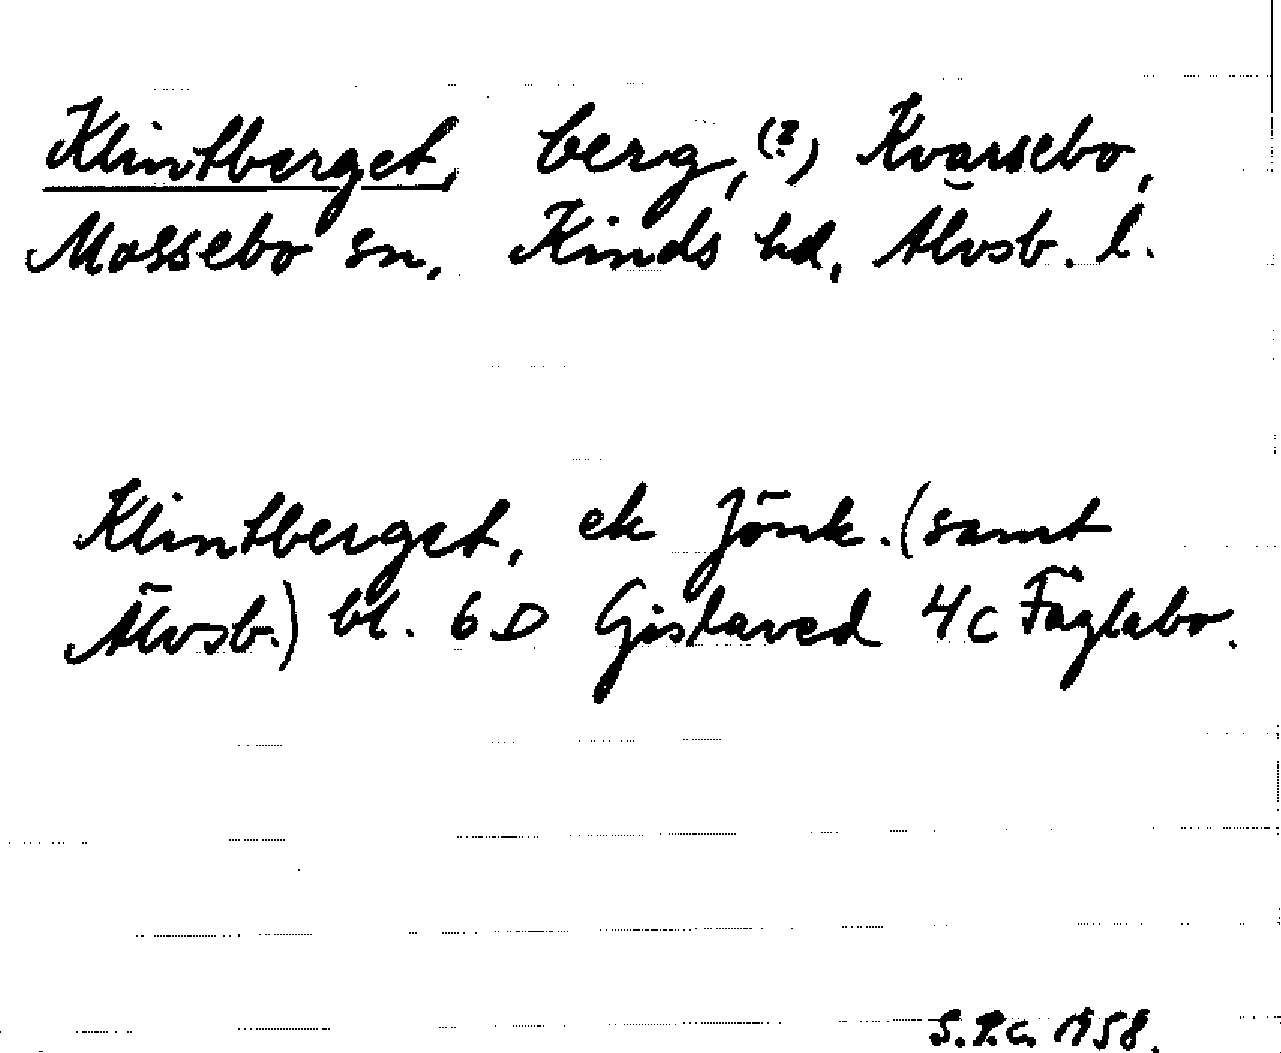 Klintberget, berg, (?) Kvarsebo,
Mossebo sn, Kinds hd, Älvsb. l.
Klintberget, ek Jönk. (samt
Älvsb.) bl. 6 D Gislaved 4 c Fåglabo.
1958.